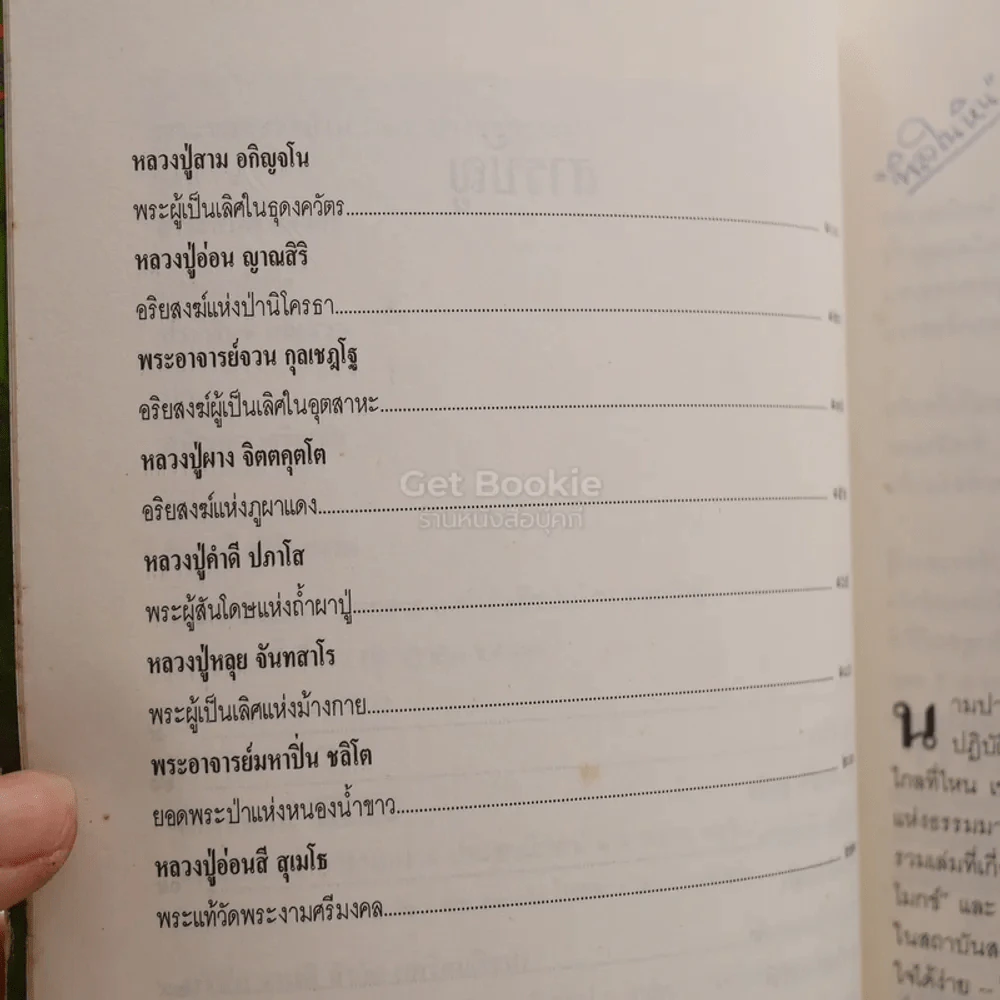 หลวงปู่สาม อกิญจโน
พระผู้เป็นเลิศในธุดงควัตร
หลวงปู่อ่อน ญาณสิริ
อริยสงฆ์แห่งป่านิโครธา
พระอาจารย์จวน กุลเชฏโฐ
อริยสงฆ์ผู้เป็นเลิศในอุตสาหะ
หลวงปู่ผาง จิตตคุตโต
อริยสงฆ์แห่งภูผาแดง
หลวงปู่คำดี ปภาโส
พระผู้สันโดษแห่งถ้ำผาปู่
หลวงปู่หลุย จันทสาโร
พระผู้เป็นเลิศแห่งม้างกาย
พระอาจารย์มหาปิ่น ชลิโต
ยอดพระป่าแห่งหนองน้ำขาว
หลวงปู่อ่อนสี สุเมโธ
พระแท้วัดพระงามศรีมงคล
Get Bookie
ร้านหนังสือบุ๊คกี้
นามปา
ปฏิบั
ใกลที่ไหน เ
แห่งธรรมมา
รวมเล่มที่เกี่
ไมกซ์" และ
ในสถาบันส
ใจได้ง่าย --